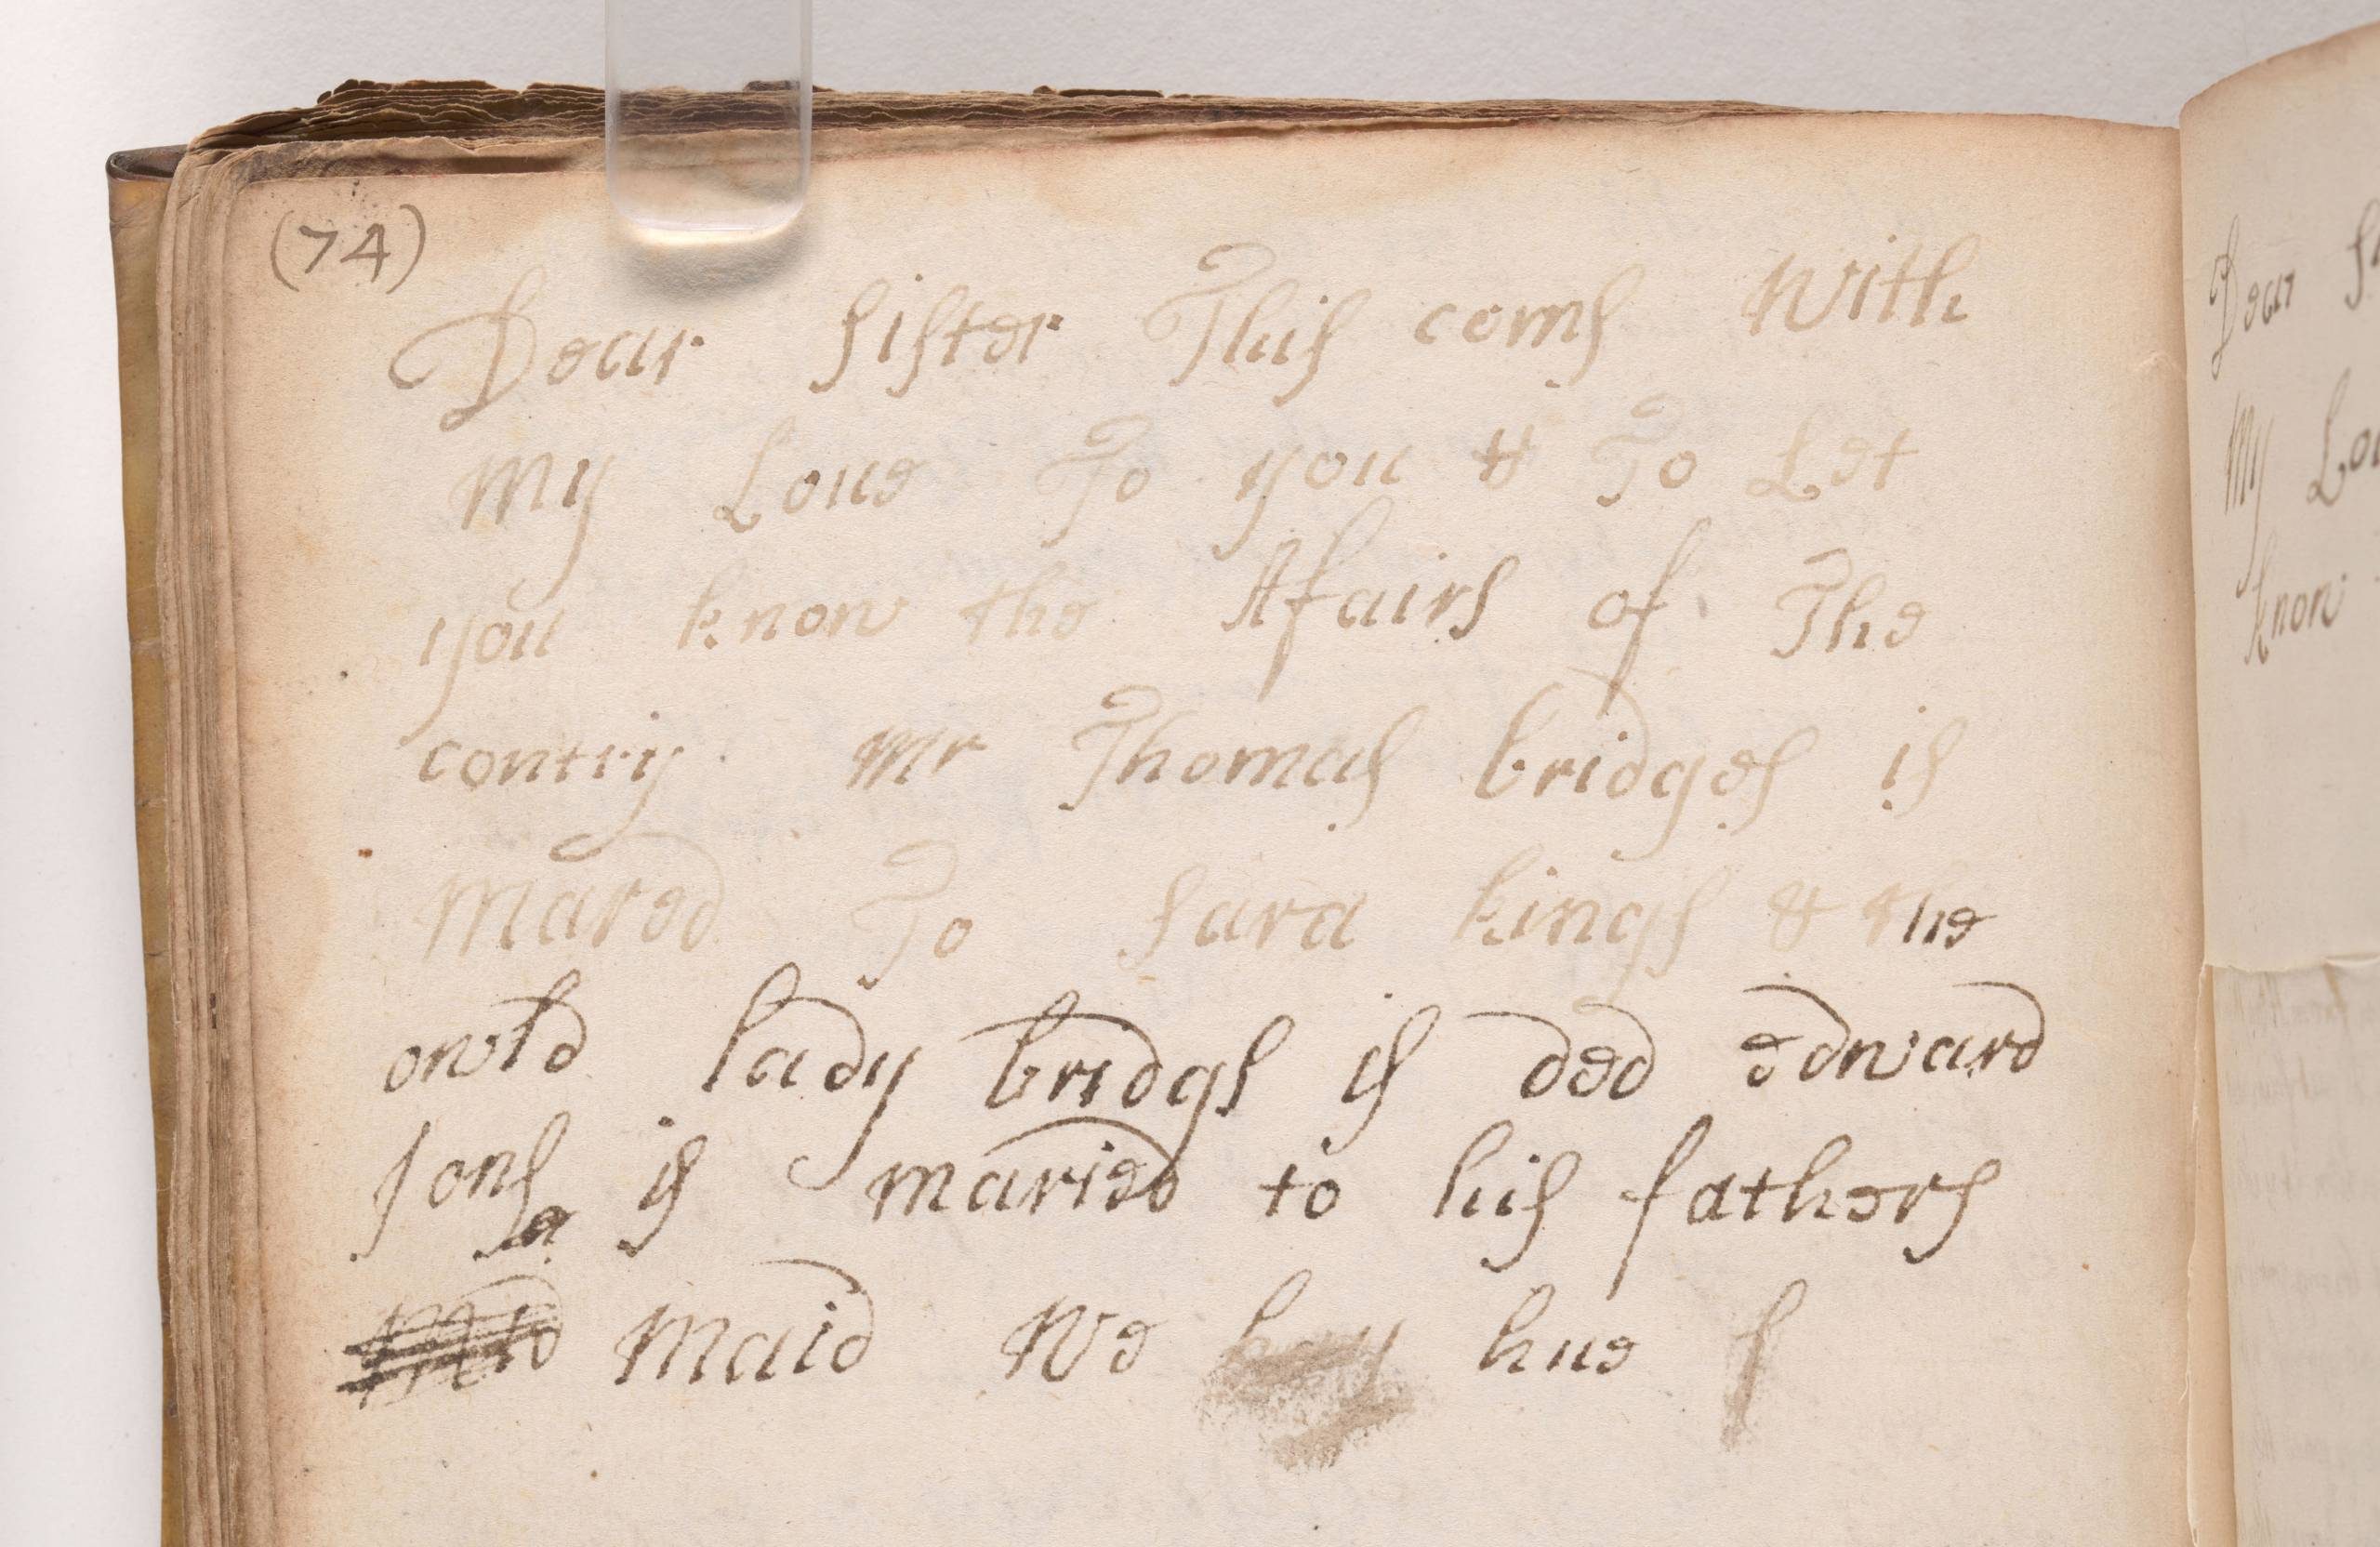 (74)
Dear sister This coms With
My Loue To you & To Let
you know the Afairs of The
contry Mr Thomas bridges is
Mared To sara kings & the
owld lady bridgs is ded edward
Jons is maried to his fathers
Maid We hue
Dear
My
know